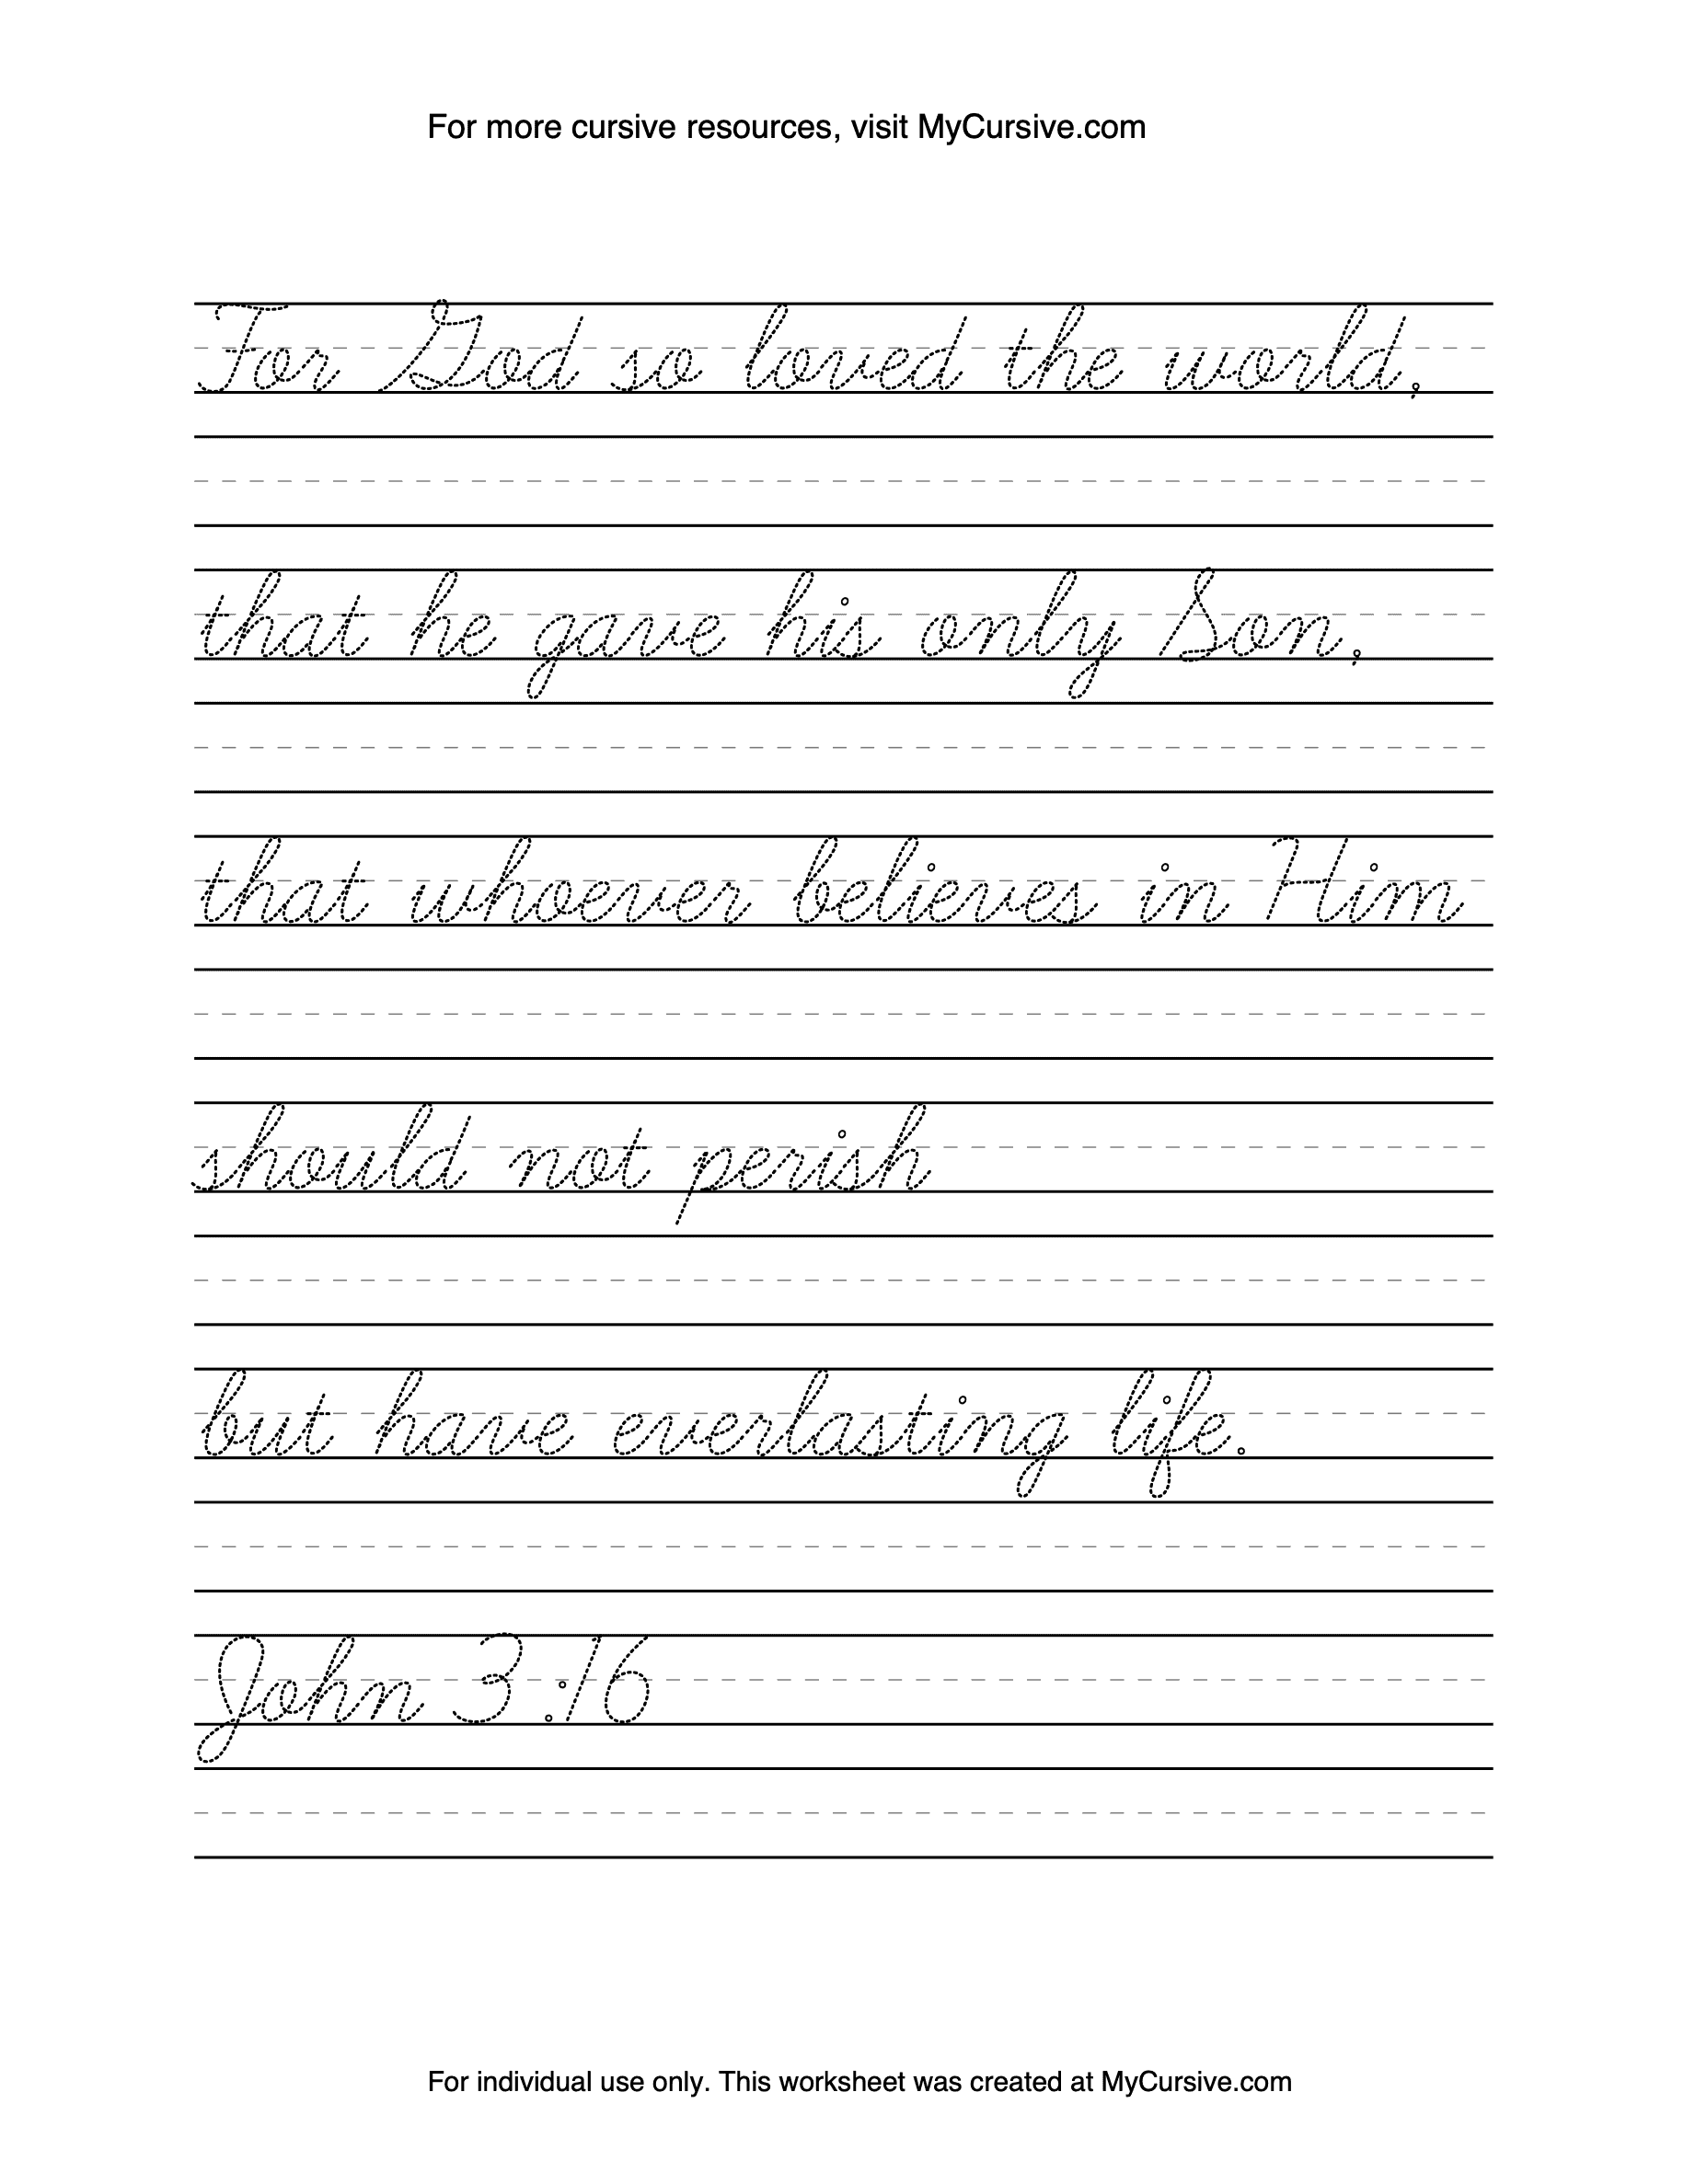 For more cursive resources, visit MyCursive.com
For God so loved the world,
that he gave his only Son,
that whoever believes in Him
should not perish
but have everlasting life.
John 3:16
For individual use only. This worksheet was created at MyCursive.com